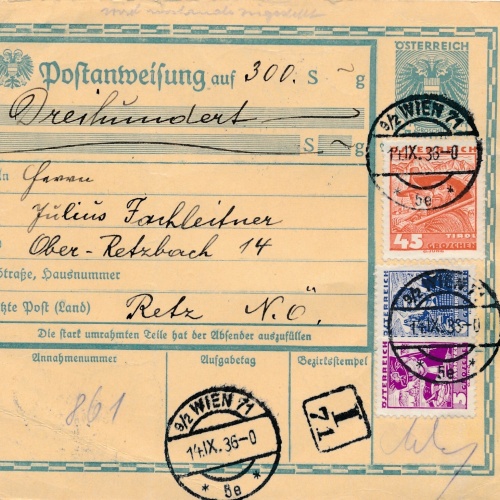 ÖSTERREICH
Postanweisung auf 300. S g
Dreihundert
S g
Herrn
Julius Fachleitner
Ober-Retzbach 14
Straße, Hausnummer
Post (Land) Retz N.Ö.
Die stark umrahmten Teile hat der Absender auszufüllen
Annahmenummer Aufgabetag Bezirksstempel
861
9/2 WIEN 71
14.IX.36-0
* 5e *
ÖSTERREICH
TIROL
45
GROSCHEN
14.IX.36-0
5e
ÖSTERREICH
3
GROSCHEN
9/2 WIEN 71
14.IX.36-0
* 5e *
I
71